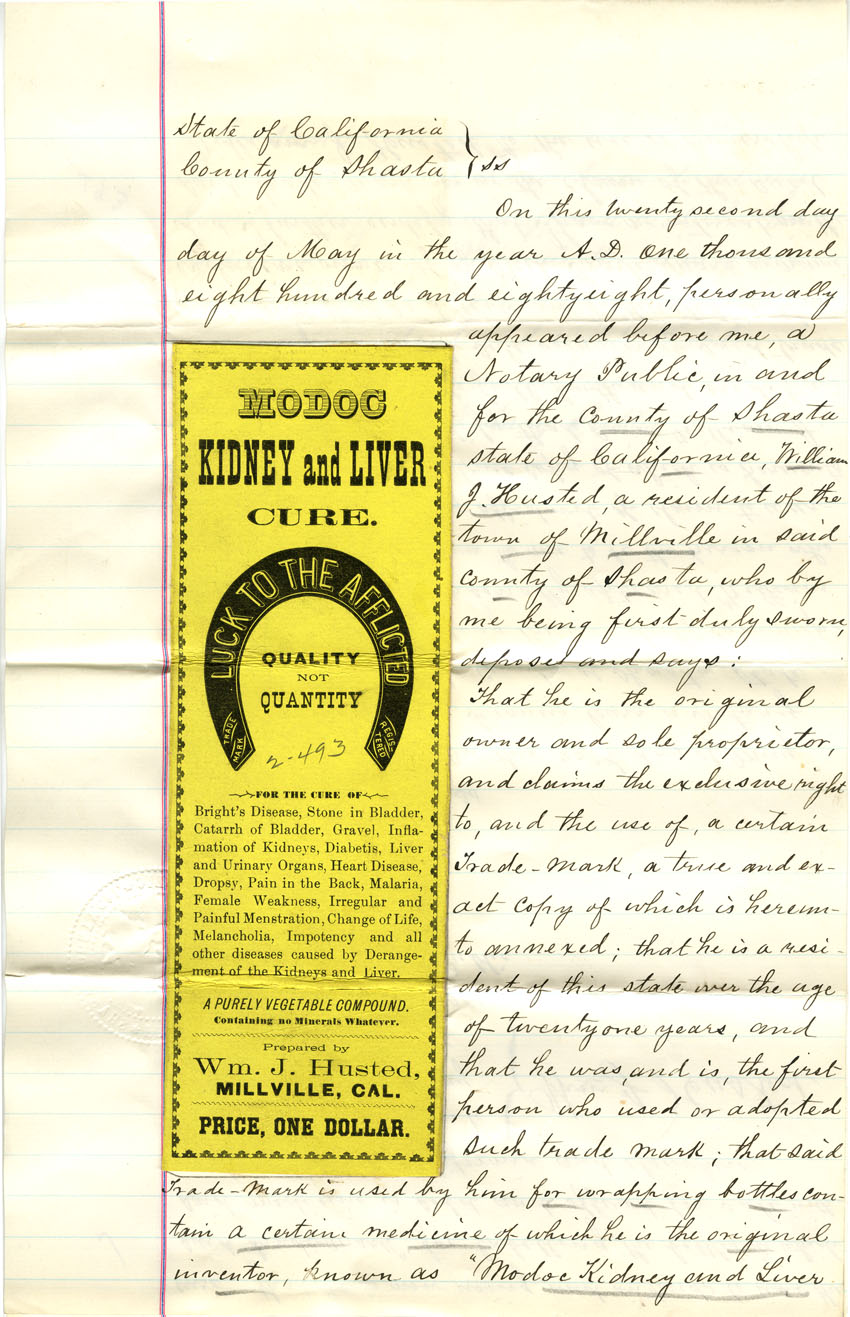 State of California
County of Shasta } ss
On this twenty second day
day of May in the year A.D. One thousand
eight hundred and eightyeight, personally
appeared before me, a
Notary Public, in and
for the County of Shasta
state of California, William
J. Husted, a resident of the
town of Millville in said
county of Shasta, who by
me being first duly sworn,
deposes and says:
That he is the original
owner and sole proprietor,
and claims the exclusive right
to, and the use of, a certain
Trade-Mark, a true and ex-
act copy of which is hereun-
to annexed; that he is a resi-
dent of this state over the age
of twentyone years, and
that he was, and is, the first
person who used or adopted
such trade mark; that said
Trade-Mark is used by him for wrapping bottles con-
tain a certain medicine of which he is the original
inventor, known as "Modoc Kidney and Liver
MODOC
KIDNEY and LIVER
CURE.
LUCK TO THE AFFLICTED
QUALITY
NOT
QUANTITY
TRADE
MARK
REGIS
TERED
2-493
FOR THE CURE OF
Bright's Disease, Stone in Bladder,
Catarrh of Bladder, Gravel, Infla-
mation of Kidneys, Diabetis, Liver
and Urinary Organs, Heart Disease,
Dropsy, Pain in the Back, Malaria,
Female Weakness, Irregular and
Painful Menstration, Change of Life,
Melancholia, Impotency and all
other diseases caused by Derange-
ment of the Kidneys and Liver.
A PURELY VEGETABLE COMPOUND.
Containing no Minerals Whatever.
Prepared by
Wm. J. Husted,
MILLVILLE, CAL.
PRICE, ONE DOLLAR.